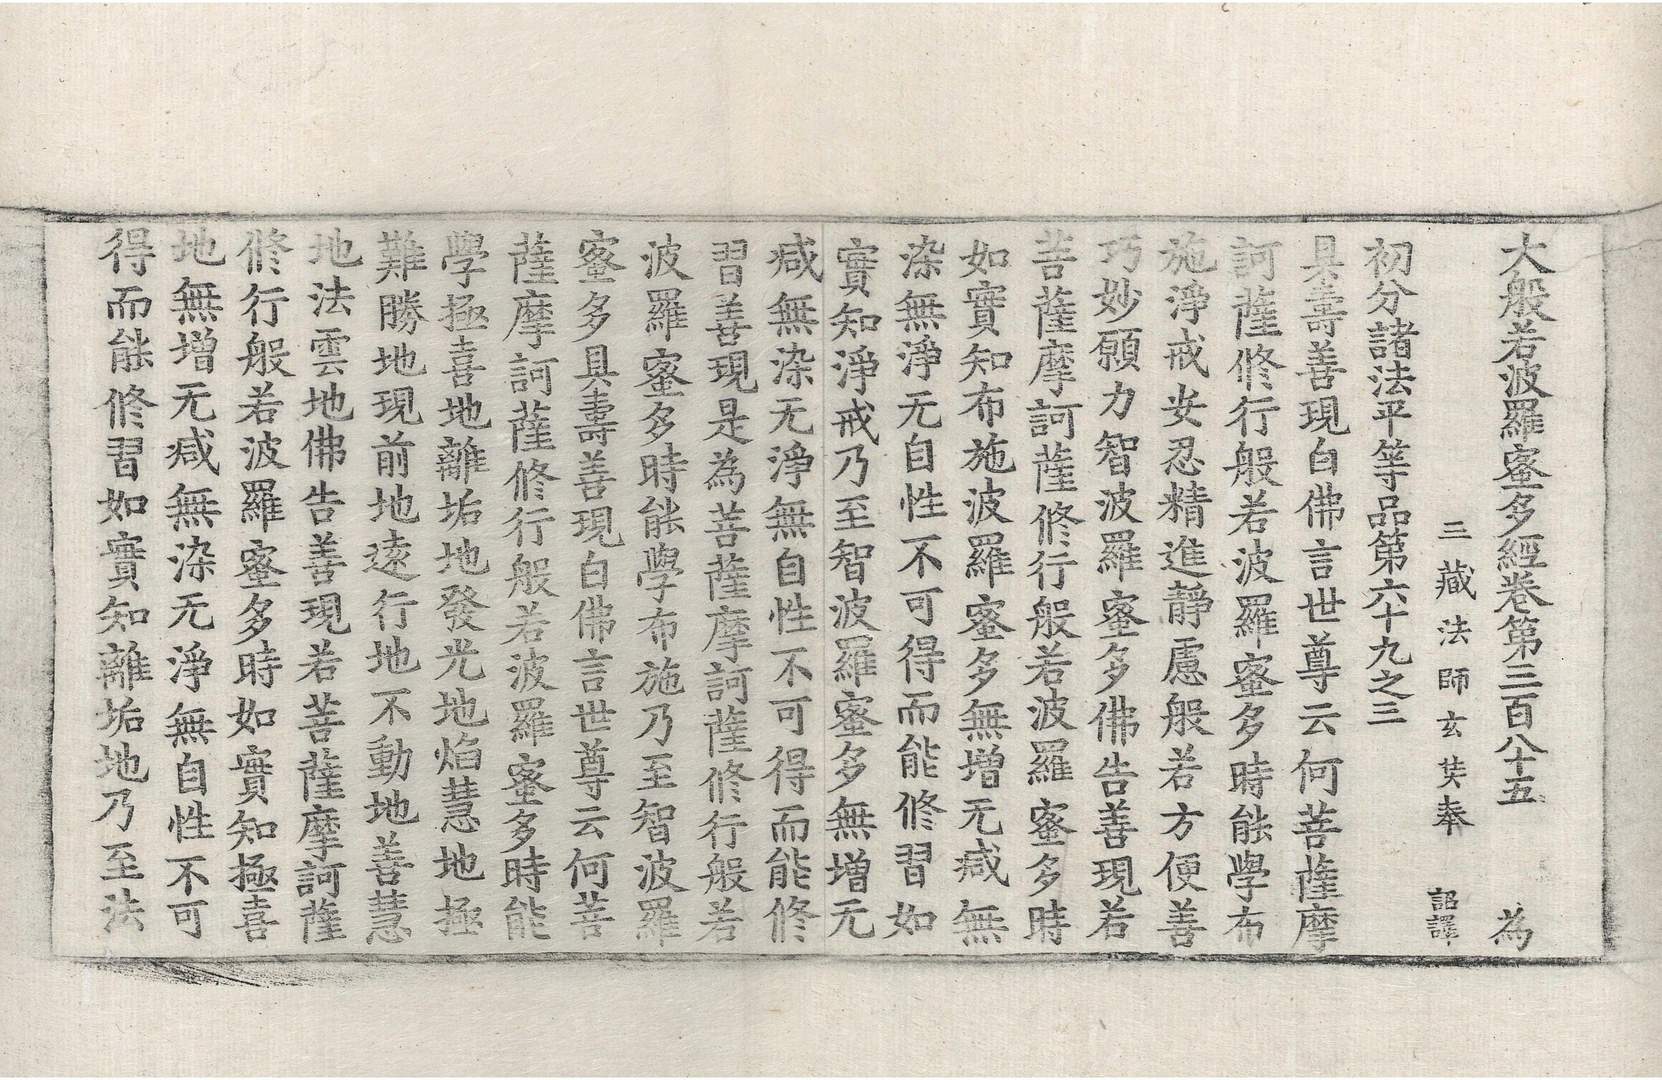 大般若波羅蜜多經卷第三百八十五　為
三藏法師玄奘奉　詔譯
初分諸法平等品第六十九之三
具壽善現白佛言世尊云何菩薩摩
訶薩修行般若波羅蜜多時能學布
施淨戒安忍精進靜慮般若方便善
巧妙願力智波羅蜜多佛告善現若
菩薩摩訶薩修行般若波羅蜜多時
如實知布施波羅蜜多無增无減無
染無淨无自性不可得而能修習如
實知淨戒乃至智波羅蜜多無增无
減無染无淨無自性不可得而能修
習善現是為菩薩摩訶薩修行般若
波羅蜜多時能學布施乃至智波羅
蜜多具壽善現白佛言世尊云何菩
薩摩訶薩修行般若波羅蜜多時能
學極喜地離垢地發光地焰慧地極
難勝地現前地遠行地不動地善慧
地法雲地佛告善現若菩薩摩訶薩
修行般若波羅蜜多時如實知極喜
地無增无減無染无淨無自性不可
得而能修習如實知離垢地乃至法